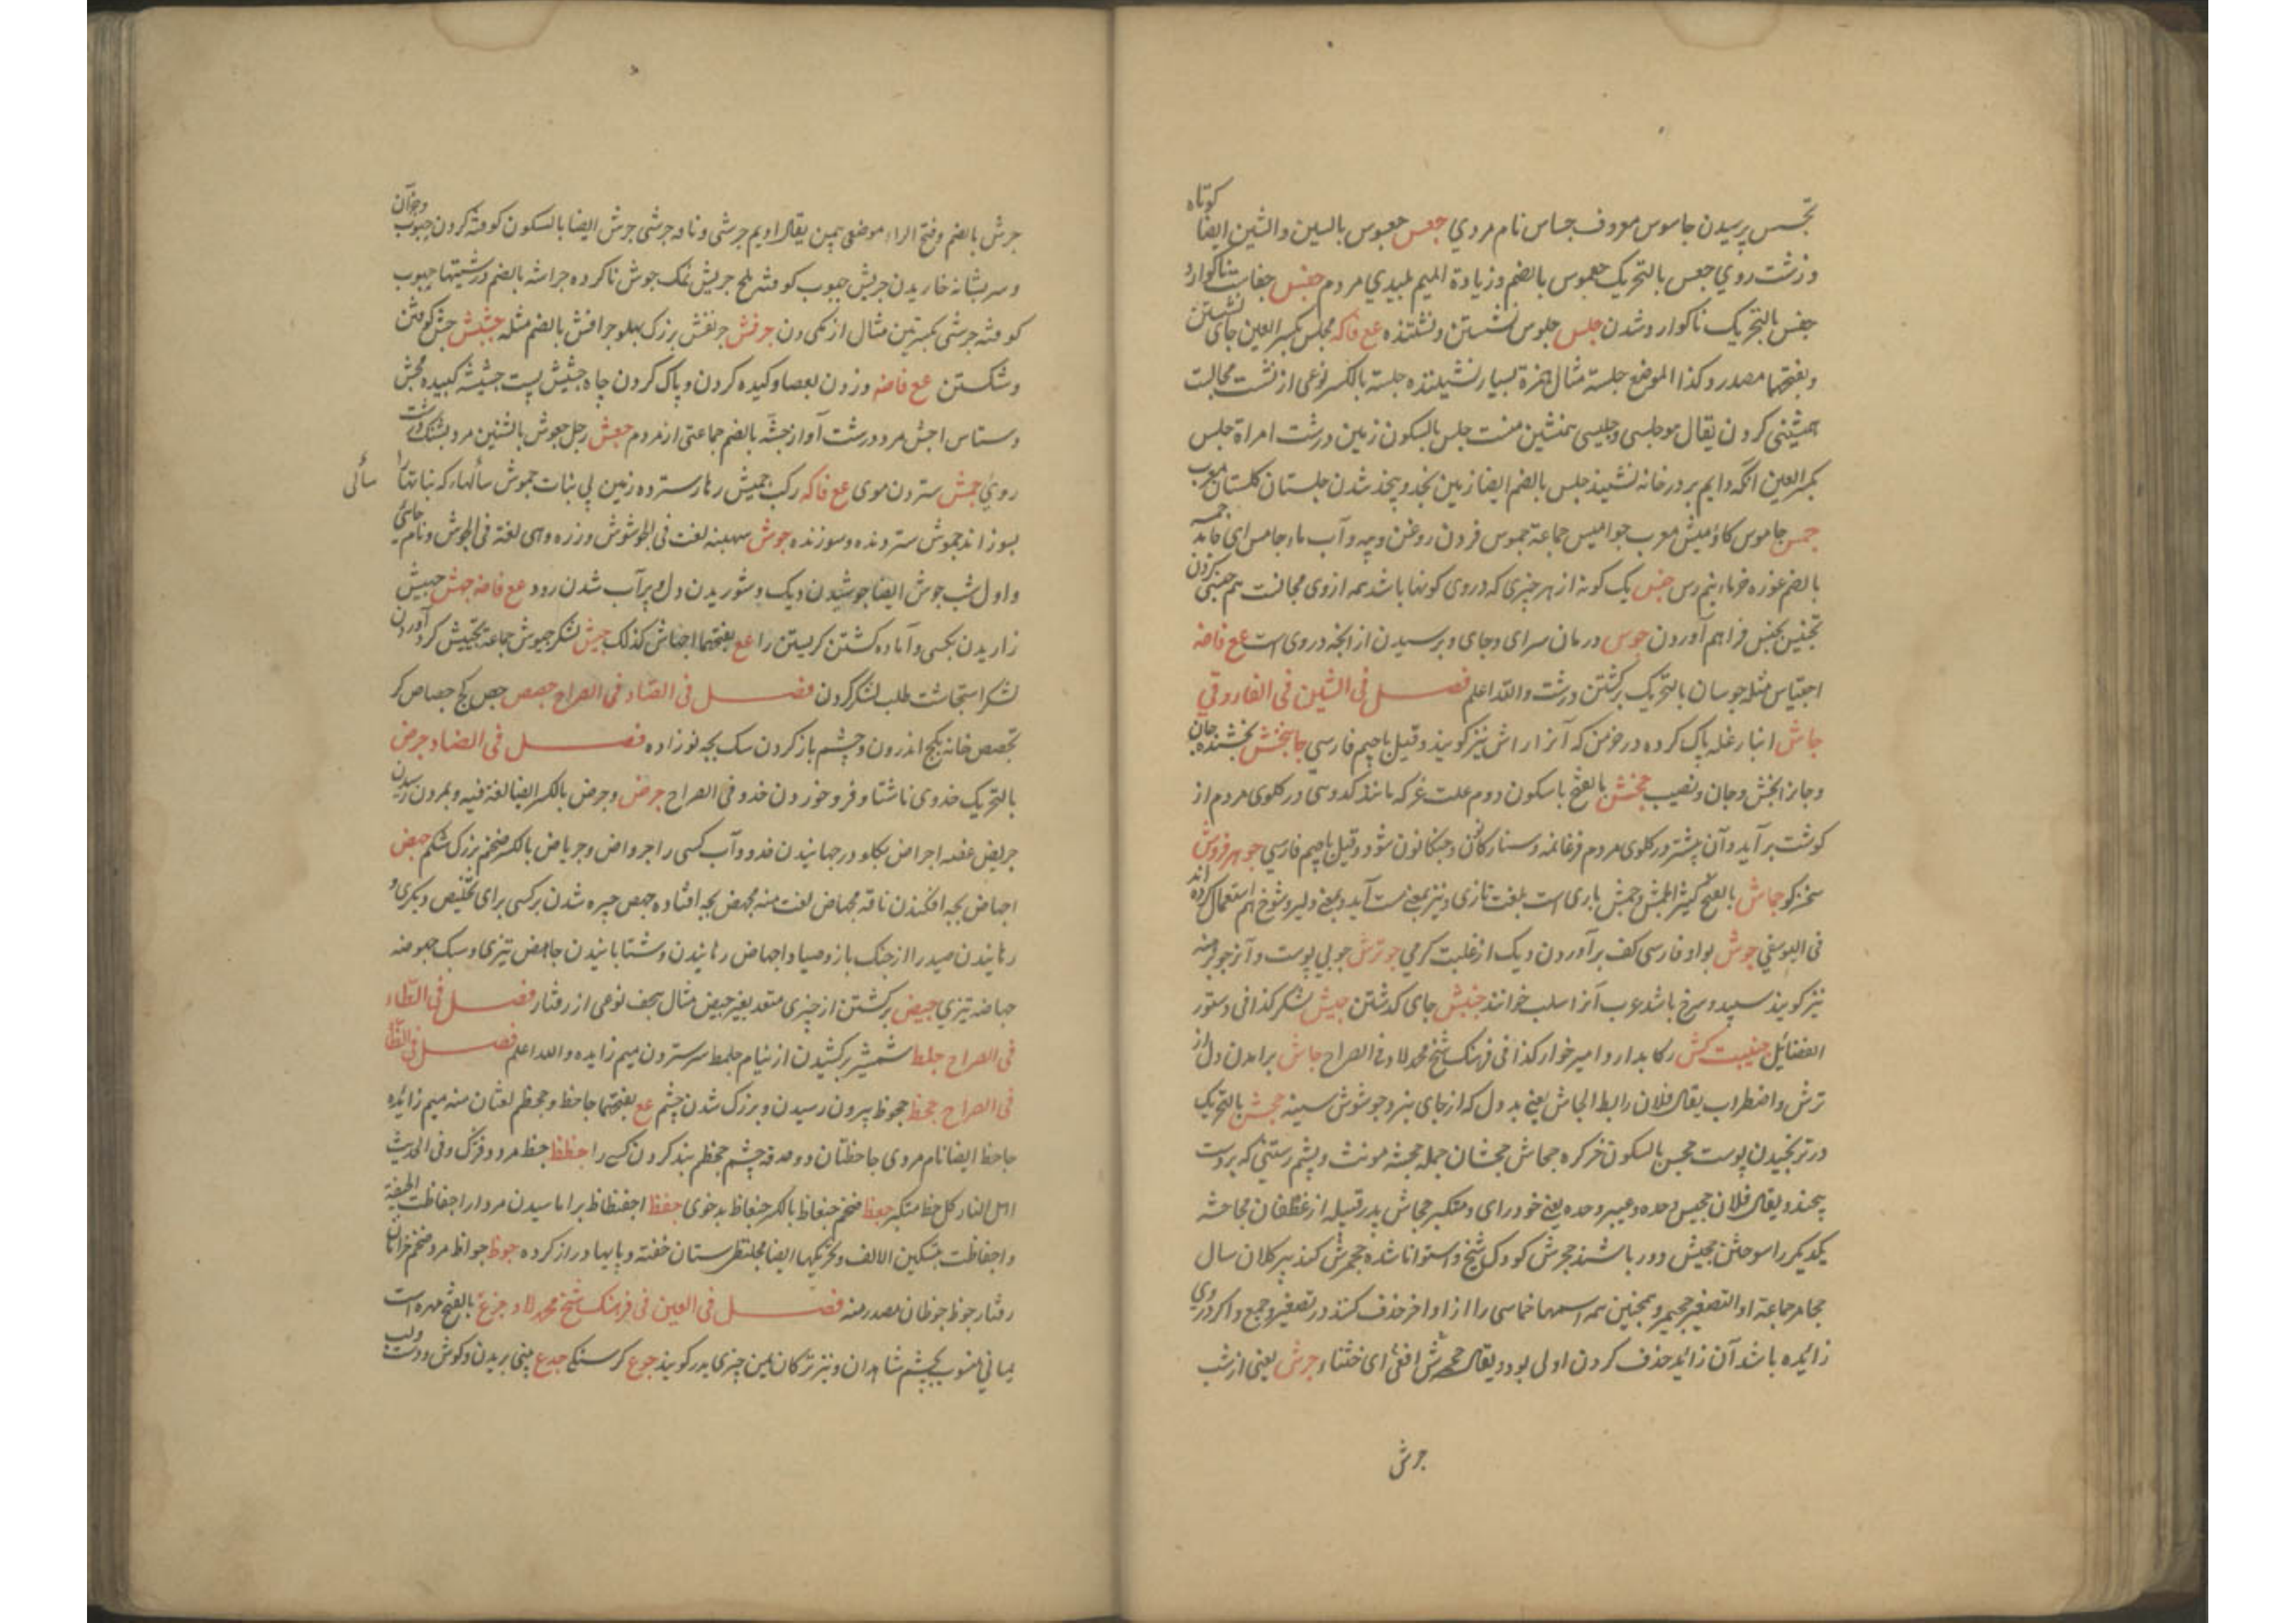 تجسس پرسیدن جاسوس معروف جساس نام مردی جعس جعبوس بالسین والشین ایضا کوتاه
و زشت روی جعس بالتحریک جعموس بالضم و زیادة المیم پلیدی مردم جفس
جفس بالتحریک ناکوارد شدن جلس جلوس نشستن و نشستنده مع فاکه مجلس بکسر العین جای نشستن
و بفتحها مصدر و کذا الموضع جلسة مثال همزة بسیار نشیننده جلسة بالکسر نوعی از نشست مجالست
همنشینی کردن یقال هو جلسی و جلیسی همنشین منست جلس بالسکون زمین درشت امراة جلس
بکسر العین آنکه دایم بر در خانه نشیند جلس بالضم ایضا زمین نجد و بنجد شدن جلستان کلستان معرب
جمس جاموس کاومیش معرب جوامیس جماعة جموس فسردن روغن و پیه و آب ماء جامس ای جامد
بالضم غوره خرما نیم رس جنس یک کونه از هر چیزی که در وی کونها باشد همه از وی مجانست هم جنسی کردن
تجنیس جنس فراهم آوردن جوس در میان سرای و جای و پرسیدن از آنچه در وی است مع فاضه
اجتیاس مثله جوسان بالتحریک برکشتن درشت والله اعلم فصل فی الشین فی الفاروقی
جاش انبار غله پاک کرده در خرمن که آنرا راش نیز کویند و قیل با جیم فارسی جانبخش بخشنده جان
و جانرا بخش و جان و نصیب جخش بالفتح با سکون دوم علت غر که مانند کدوی در کلوی مردم از
کوشت برآید و آن بیشتر در کلوی مردم فرغانه و قیل با جیم فارسی جو هر فروش
سخن کو جماش بالفتح بلغت تازی و نیز بمعنی مست آید و بمعنی دلیر و شوخ هم استعمال کرده اند
فی الیوسفی جوش بواو فارسی کف برآوردن دیک از غلبت کرمی جو ترش
نیز کویند سپید و سرخ باشد عرب آنرا سلب خوانند جنبش جای کدشتن جیش لشکر کذا فی دستور
الفضائل جنیبت کش رکابدار و امیر خوار کذا فی فرهنک شیخ محمد لاد فی الصراح جاش برامدن دل از
ترس و اضطراب یقال فلان رابط الجاش یعنی بد دل که از جای نبرد جوشوش سینه جحش بالتحریک
در ترنجیدن پوست جحش بالسکون خر کره جحاش جحشان جمله جحشه مونث و پشم رستنی که بر دست
پیچند و یقال فلان جحیش وحده و عییر وحده یعنی خود رای و متکبر جحاش پدر قبیله از غطفان مجاحشه
یکدیکر را سوختن جحیش دور باشند جحرش کودک شیخ و استوانا شده جحمرش کند پیر کلان سال
جحامر جماعة او التصغیر جحیمر و همچنین همه اسمها خماسی را از اواخر حذف کنند در تصغیر و جمع و اکر در وی
زائده باشد آن زائد حذف کردن اولی بود و یقال جحمرش افعی ای خشنا و جرش یعنی از شب
جرش
جرش بالضم و فتح الراء موضعی بیمن یقال ادیم جرشی و ناقه جرشی جرش ایضا بالسکون کوفته کردن حبوب و جز آن
و سر بشانه خاریدن جریش حبوب کوفته ملح جریش نمک جوش ناکرده جراشه بالضم درشتیها حبوب
کوفته جرشی بکسرتین مثال ازمکی دون جرفش جرنفش بزرک پهلو جرافش بالضم مثله جشش جش کوفتن
و شکستن مع فاضه و زدن بعصا و کبیده کردن و پاک کردن چاه جشیش پست جشیشه کبیده مجش
دستاس اجش مرد درشت آواز جشه بالضم جماعتی از مردم جعش رجل جعوش بالشین مرد
روی جمش ستردن موی مع فاکه رکب جمیش زهار سترده زمین بی نبات جموش سالها که نباتها را
سالی
بسوزاند جموش سترونده و سوزنده جوش سپینه لغت فی الجوشوش و زره وهی لغة فی الجوش و نام جائی
و اول شب جوش ایضا جوشیدن دیک و شوریدن دل و پر آب شدن رود مع فاضه جهش جهیش
زاریدن بکسی و آماده کشتن کریستن را مع بفتحهما اجهاش کذلک جیش لشکر جیوش جماعة تجییش کرد آوردن
لشکر استجاشت طلب لشکر کردن فصل فی الصاد فی الصراح جصص جص کج جصاص کر
تجصص خانه بکج اندرون و چشم باز کردن سک بچه نوزاده فصل فی الضاد جرض
بالتحریک خدوی ناشتا و فرو خوردن خدو فی الصراح جرض و جرض بالکسر ایضا لغة فیه و بمردن رسیدن
جریض غصه اجراض بکلو در جهانیدن خدو و آب کسی را جرواض و جریاض بالکسر ضخم بزرک شکم جهض
اجهاض بچه افکندن ناقه مجهاض لغت منه مجهض بچه افتاده جهض چیره شدن بر کسی برای تخلیص دیکری و
رهانیدن صید را از چنک باز و صیاد اجهاض رهانیدن و شتابانیدن جاهض تیزی و سبک جهوضه
جهاضه تیزی جیض برکشتن از چیزی متعد بغیر جیض مثال هجف نوعی از رفتار فصل فی الطاء
فی الصراح جلط شمشیر برکشیدن از نیام جلمط سر ستردن میم زایده والله اعلم فصل فی الظاء
فی الصراح جحظ جحوظ بیرون رسیدن و بزرک شدن چشم مع بفتحهما جاحظ و جحظم لغتان منه میم زائده
جاحظ ایضا نام مردی جاحظتان دو حدقه چشم جحظم بند کردن کسی را جظظ جظ مرد و فزک و فی الحدیث
اهل النار کل جظ متکبر جعظ ضخم جنعاظ بالکسر جنعاظ بدخوی جفظ اجفیظاظ برآماسیدن مردار اجفاظت الجیفة
و اجفاظت بتسکین الالف و تحریکها ایضا مجلنظی ستان خفته و پایها دراز کرده جوظ جواظ مرد ضخم خرامان
رفتار جوظ جوظان مصدر منه فصل فی العین فی فرهنک شیخ محمد لاد جزع بالفتح مهره است
یمانی منسوب بچشم شاهدان و نیز ترکان بلین چیزی بدر کویند جوع کرسنکی جدع بینی بریدن و کوش و دست و لب